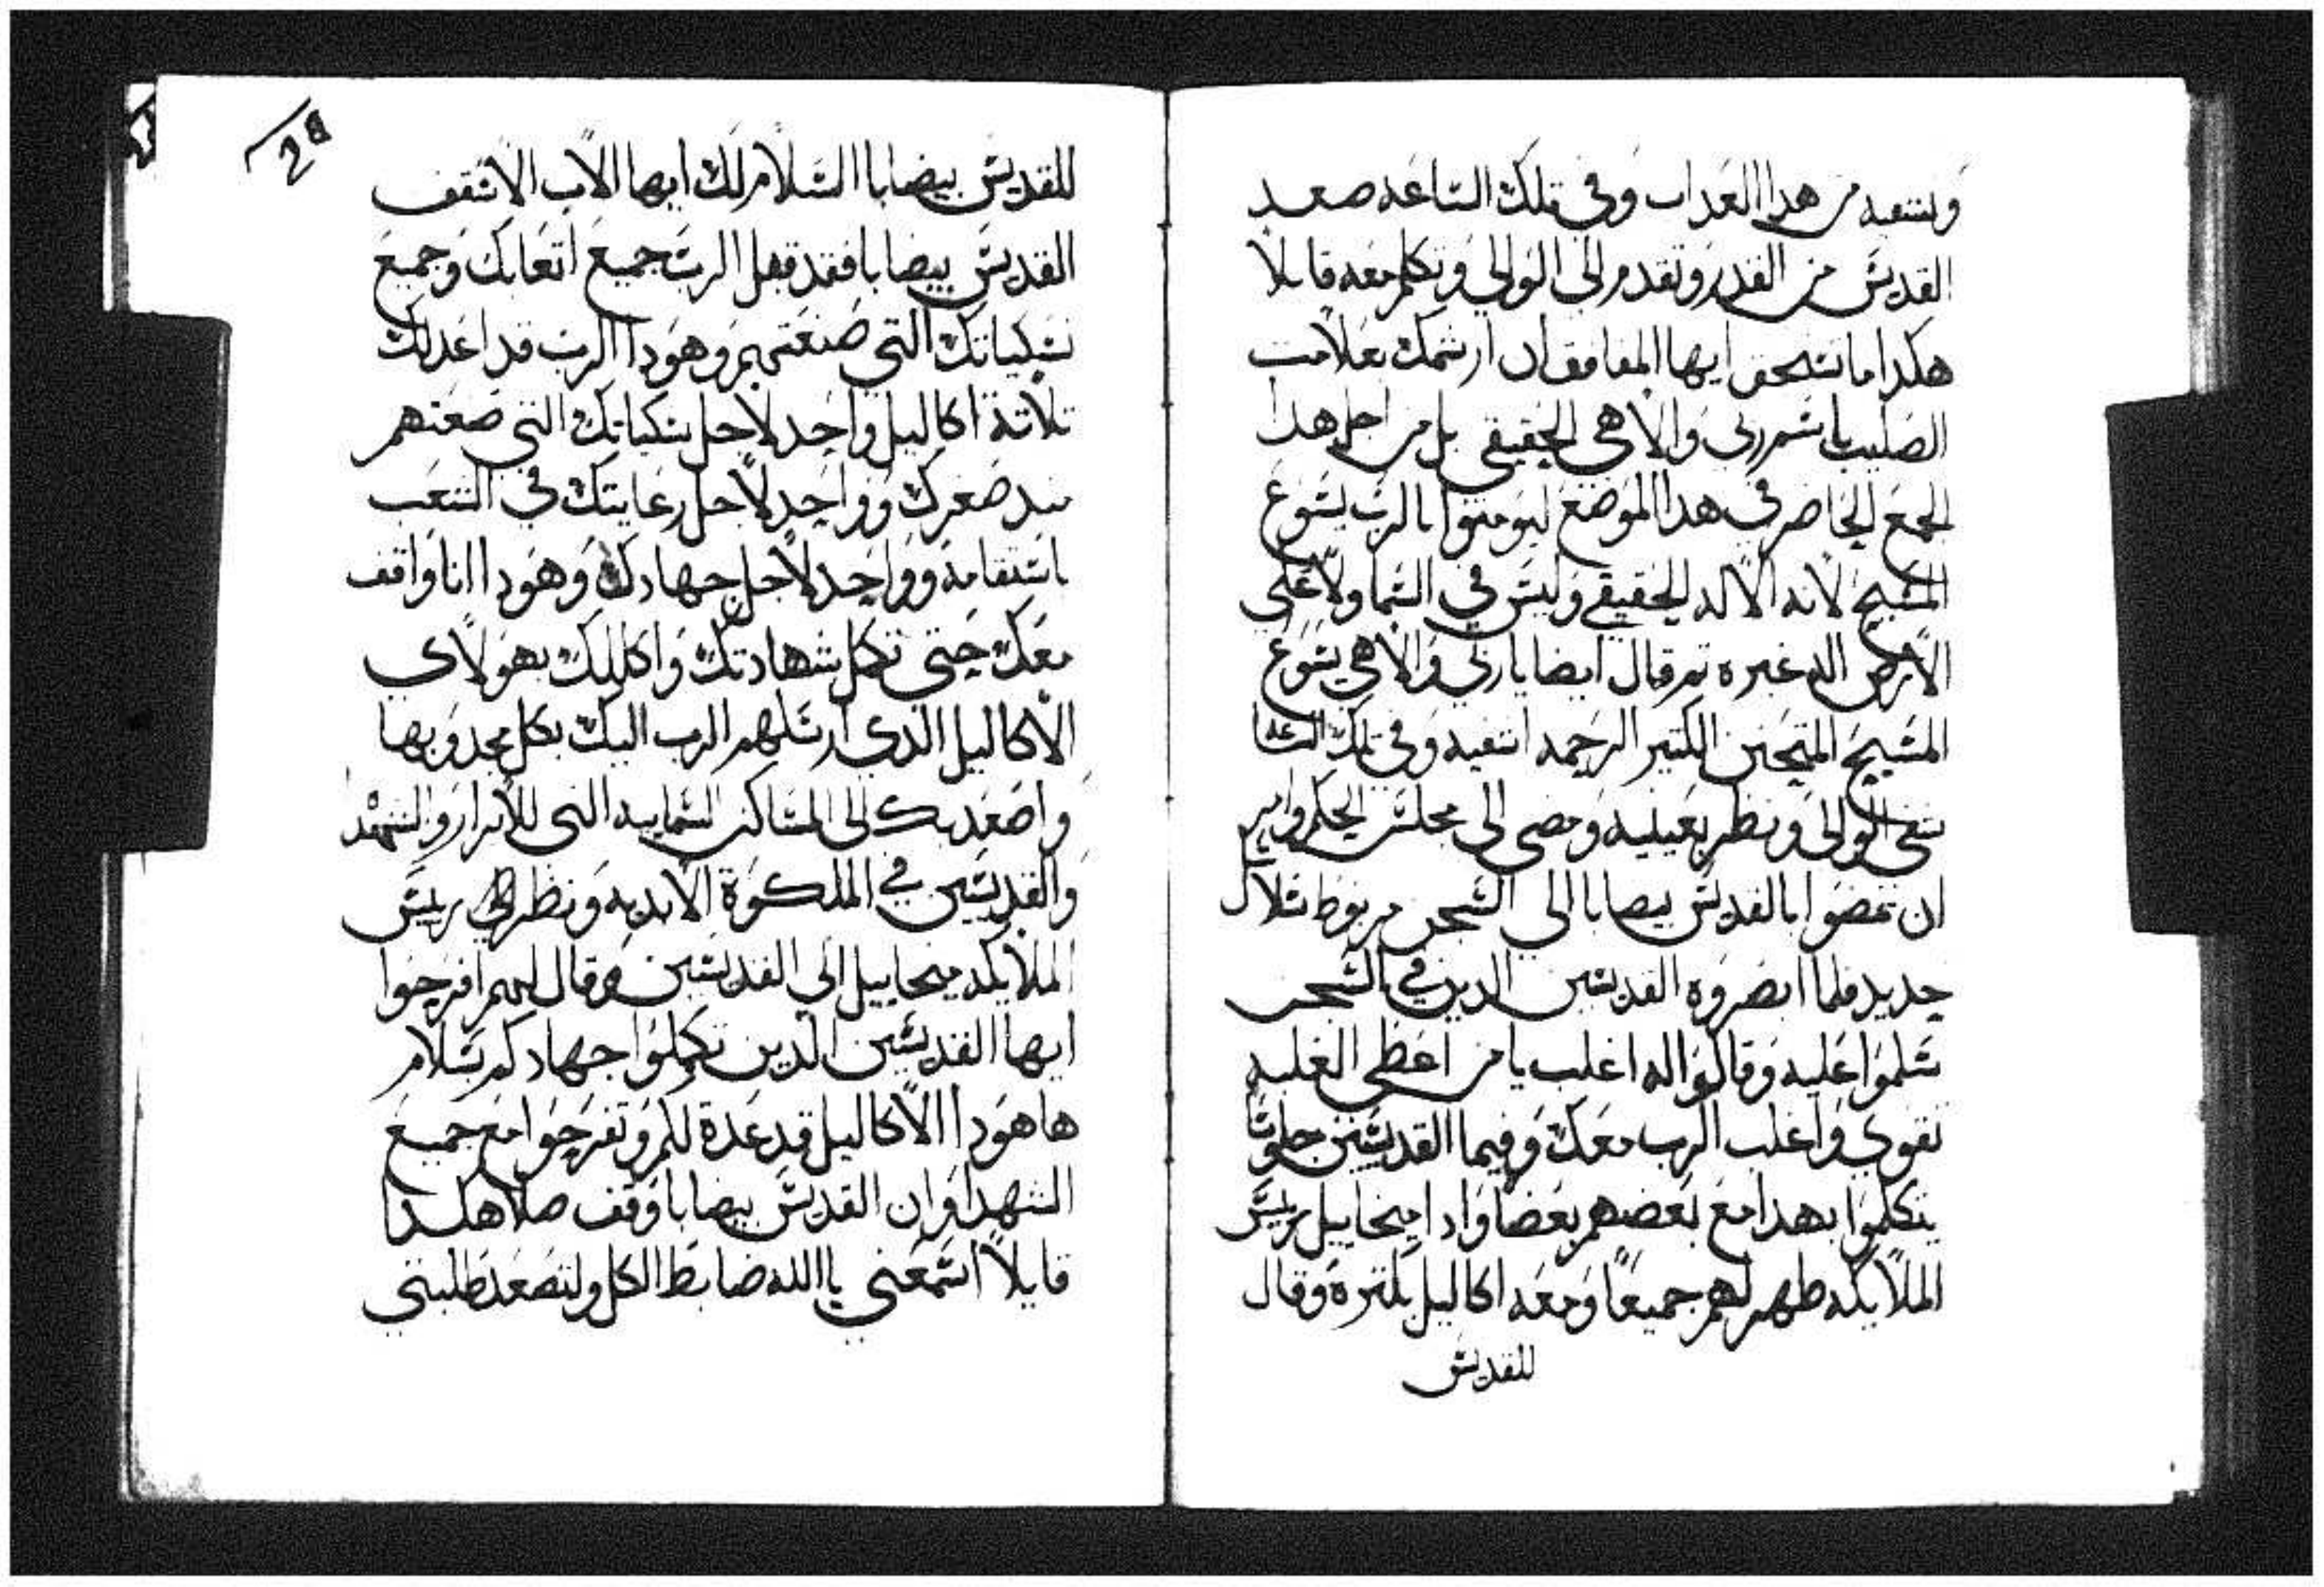 وتشفيه من هدا العداب وفى تلك الساعه صعد
القديس من القدر وتقدم الى الوالي وتكلم معه قايلا
هكدا ما تستحق ايها المنافق ان ارشمك بعلامت
الصليب باسم ربى والاهي الحقيقي بل من اجل هدا
الجمع الحاضر في هدا الموضع ليومنوا بالرب يسوع
المسيح لانه الاله الحقيقي وليس في السما ولا على
الارض اله غيره تم قال ايضا ياربي والاهي يسوع
المسيح المتحنن الكتير الرحمه اشفيه وفى تلك الساعه
شفى الوالى ونظر بعينيه ومضى الى مجلس الحكم وامر
ان يمضوا بالقديس بيضابا الى السجن مربوط بسلاسل
حديد فلما ابصروه القديسين الدين في السجن
سلموا عليه وقالوا له اغلب يا من اعطى الغلبه
تقوي واغلب الرب معك وفيما القديسين جلوسا
يتكلموا بهدا مع بعضهم بعضا وادا ميخاييل رييس
الملايكه ظهر لهم جميعا ومعه اكاليل بكتره وقال
للقديس
للقديس بيضابا السلام لك ايها الاب الاسقف
القديس بيضابا فقد قبل الرب جميع اتعابك وجميع
نسكياتك التي صنعتهم وهودا الرب قد اعد لك
تلاتة اكاليل واحد لاجل نسكياتك التي صنعتهم
مند صغرك وواحد لاجل رعايتك في الشعب
باستقامة وواحد لاجل جهادك وهودا انا واقف
معك حتي تكمل شهادتك واكللك بهولاي
الاكاليل الدي ارسلهم الرب اليك بكل مجد وبها
واصعد بك الى المساكن السماييه التى للابرار والشهدا
والقديسين في الملكوة الابديه ونظر رييس
الملايكه ميخاييل الي القديسين وقال لهم افرحوا
ايها القديسين الدين تكملوا جهادكم بسلام
ها هودا الاكاليل قد عدة لكم وتفرحوا مع جميع
الشهدا وان القديس بيضابا وقف صلا هكدا
قايلا اسمعني يا الله ضابط الكل ولتصعد طلبتي